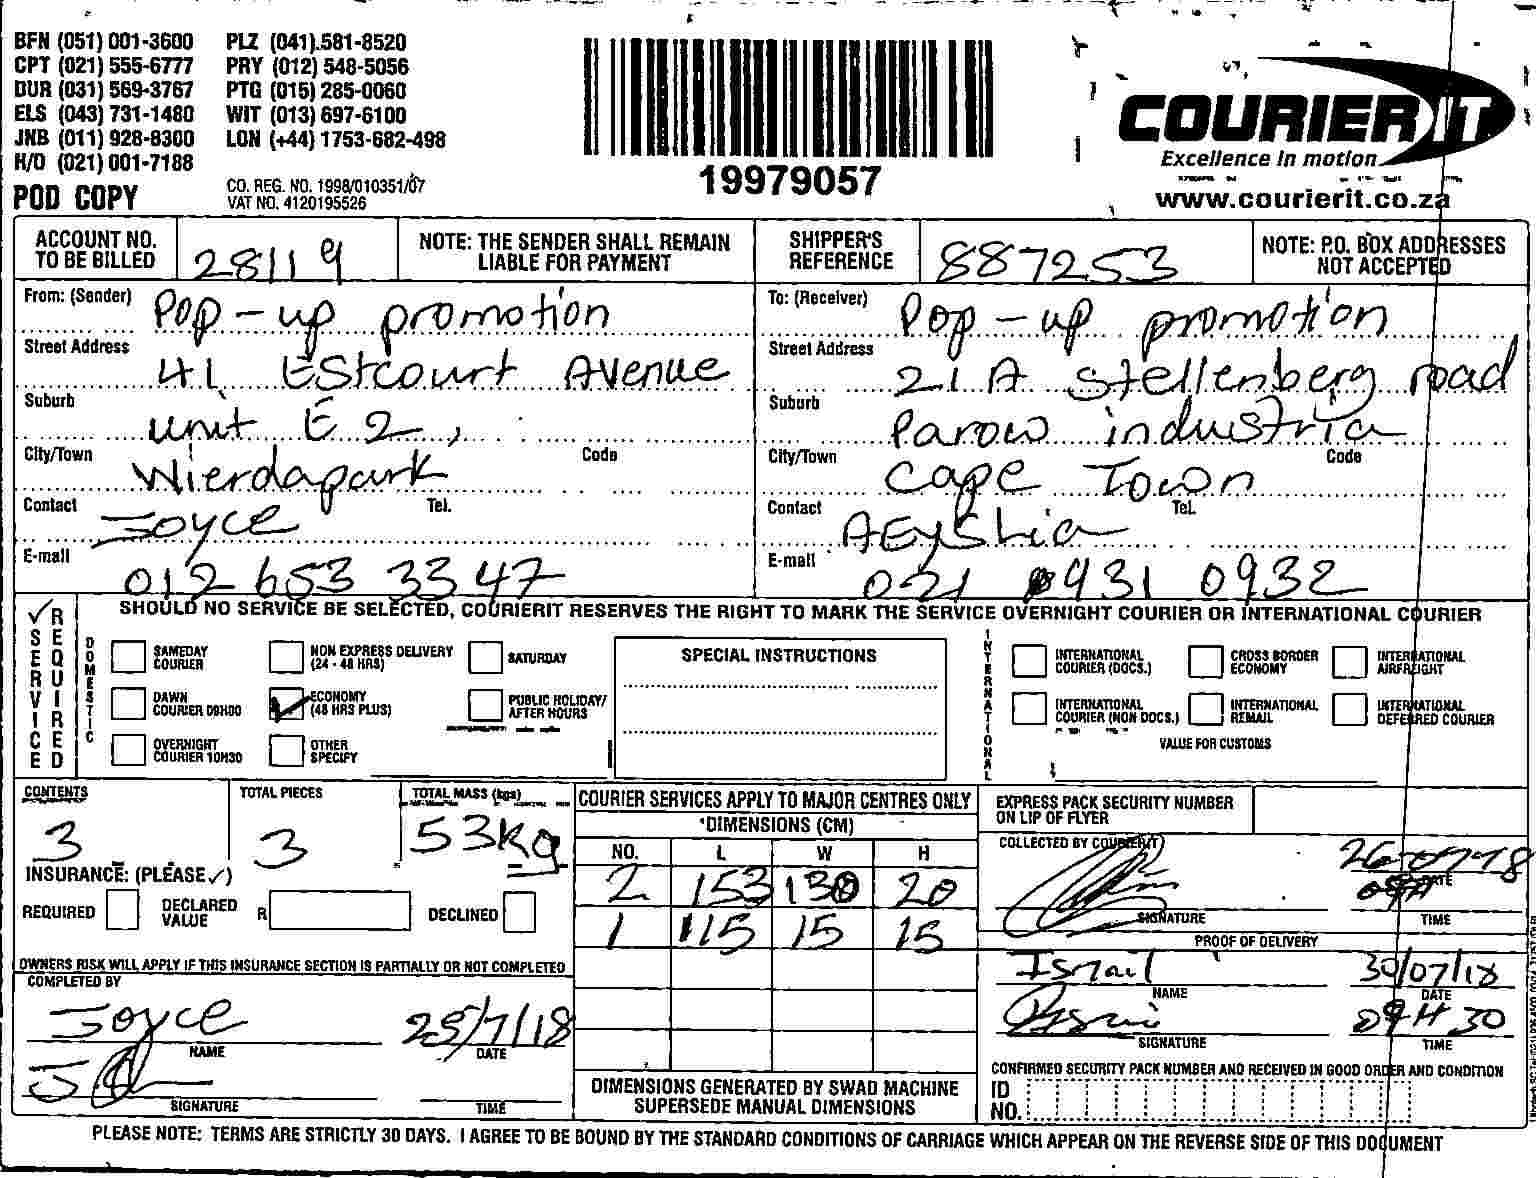 BFN (051) 001-3600 PLZ (041).581-8520
CPT (021) 555-6777 PRY (012) 548-5056
DUR (031) 569-3767 PTG (015) 285-0060
ELS (043) 731-1480 WIT (013) 697-6100
JNB (011) 928-8300 LON (+44) 1753-682-498
H/O (021) 001-7188
POD COPY
CO. REG. NO. 1998/010351/07
VAT NO. 4120195526
19979057
COURIER IT
Excellence in motion
www.courierit.co.za
ACCOUNT NO. TO BE BILLED 28119
NOTE: THE SENDER SHALL REMAIN LIABLE FOR PAYMENT
SHIPPER'S REFERENCE 887253
NOTE: P.O. BOX ADDRESSES NOT ACCEPTED
From: (Sender) Pop-up promotion
Street Address 41 Estcourt Avenue
Suburb unit E2,
City/Town Wierdapark Code
Contact Joyce Tel.
E-mail 012 653 3347
To: (Receiver) Pop-up promotion
Street Address 21 A Stellenberg road
Suburb Parow industria
City/Town Cape Town Code
Contact AEyshia Tel.
E-mail 021 931 0932
SERVICE REQUIRED
SHOULD NO SERVICE BE SELECTED, COURIERIT RESERVES THE RIGHT TO MARK THE SERVICE OVERNIGHT COURIER OR INTERNATIONAL COURIER
DOMESTIC
SAMEDAY COURIER
NON EXPRESS DELIVERY (24 - 48 HRS)
SATURDAY
DAWN COURIER 09H00
ECONOMY (48 HRS PLUS)
PUBLIC HOLIDAY/ AFTER HOURS
OVERNIGHT COURIER 10H30
OTHER SPECIFY
SPECIAL INSTRUCTIONS
INTERNATIONAL
INTERNATIONAL COURIER (DOCS.)
CROSS BORDER ECONOMY
INTERNATIONAL AIRFREIGHT
INTERNATIONAL COURIER (NON DOCS.)
INTERNATIONAL REMAIL
INTERNATIONAL DEFERRED COURIER
VALUE FOR CUSTOMS
CONTENTS 3
TOTAL PIECES 3
TOTAL MASS (kgs) 53kg
INSURANCE: (PLEASE ✓)
REQUIRED DECLARED VALUE R DECLINED
OWNERS RISK WILL APPLY IF THIS INSURANCE SECTION IS PARTIALLY OR NOT COMPLETED
COMPLETED BY
Joyce 25/7/18
NAME DATE
SIGNATURE TIME
COURIER SERVICES APPLY TO MAJOR CENTRES ONLY
*DIMENSIONS (CM)
NO. L W H
2 153 130 20
1 115 15 15
DIMENSIONS GENERATED BY SWAD MACHINE SUPERSEDE MANUAL DIMENSIONS
EXPRESS PACK SECURITY NUMBER ON LIP OF FLYER
COLLECTED BY COURIERIT
DATE
SIGNATURE TIME
PROOF OF DELIVERY
Ismail 30/07/18
NAME DATE
09H30
SIGNATURE TIME
CONFIRMED SECURITY PACK NUMBER AND RECEIVED IN GOOD ORDER AND CONDITION
ID NO.
PLEASE NOTE: TERMS ARE STRICTLY 30 DAYS. I AGREE TO BE BOUND BY THE STANDARD CONDITIONS OF CARRIAGE WHICH APPEAR ON THE REVERSE SIDE OF THIS DOCUMENT